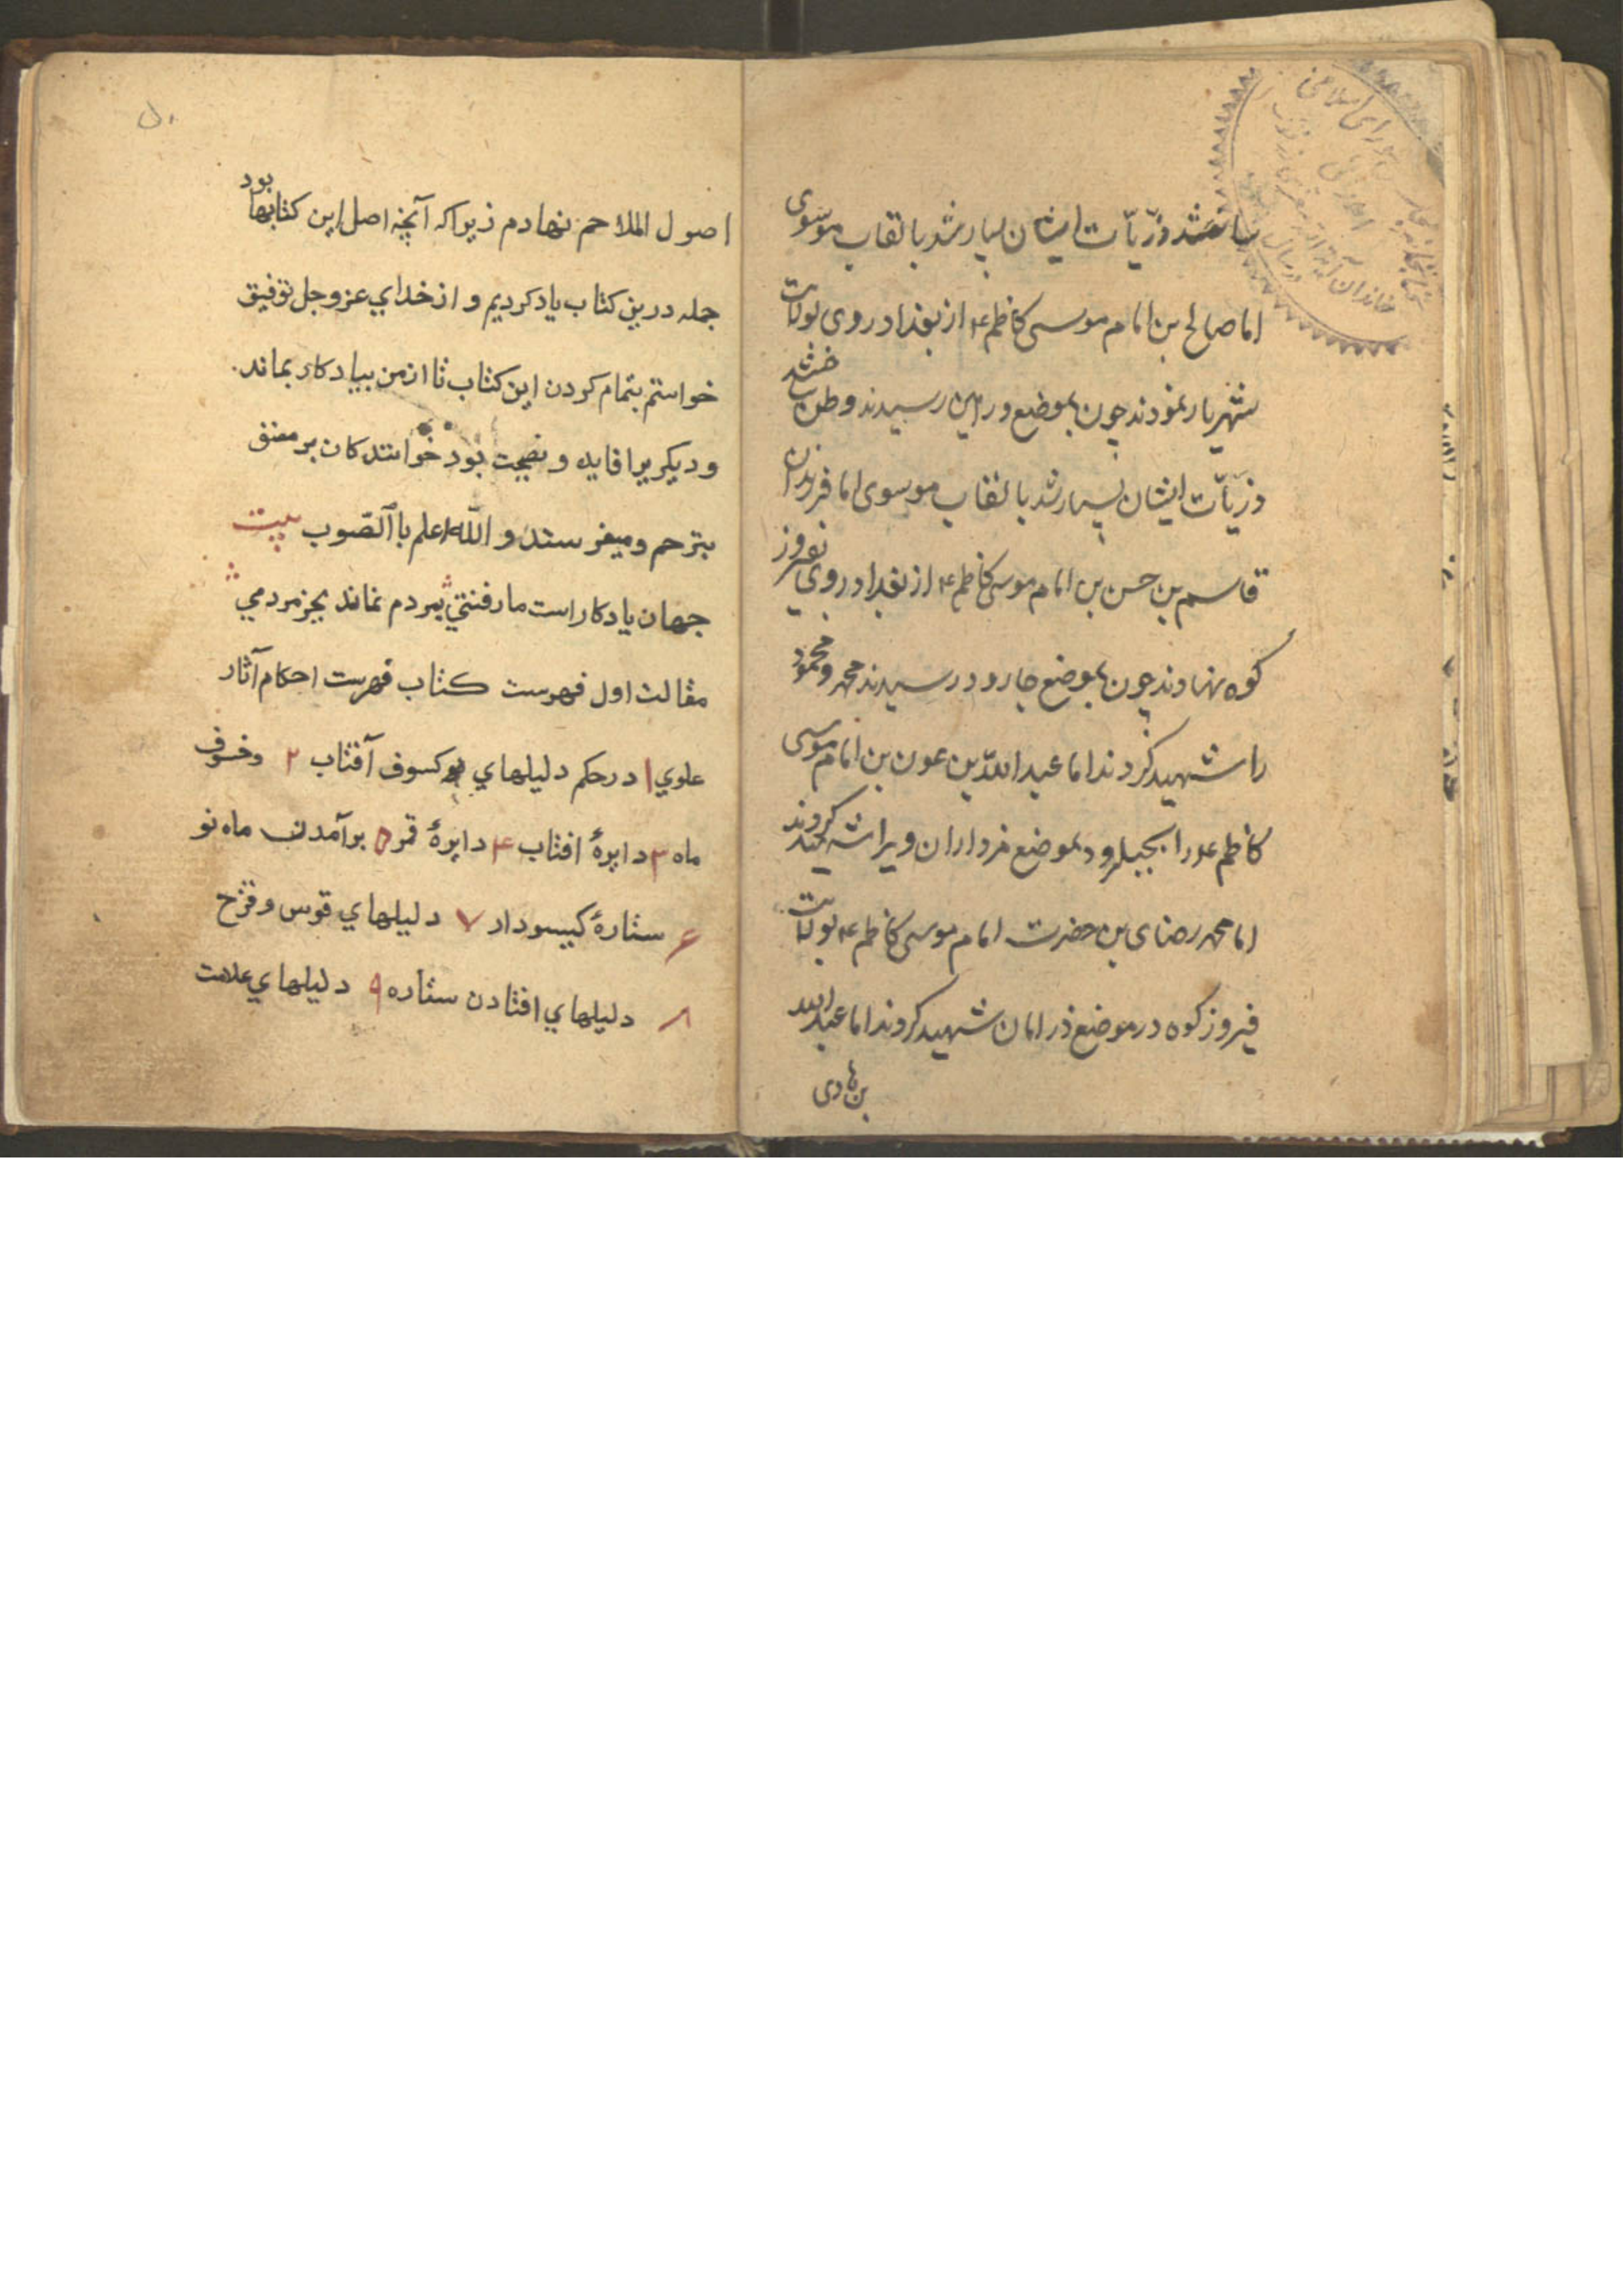 ساختند و ذرّیّات ایشان بسیار شد بالقاب موسوی
اما صالح بن امام موسی کاظم ۴ از بغداد روی بولایت
شهریار نمودند چون بموضع ورامین رسیدند وطن ساختند
ذریّات ایشان بسیار شد بالقاب موسوی اما فرزندان
قاسم بن حسن بن امام موسی کاظم ۴ از بغداد روی بفیروز
کوه نهادند چون بموضع جارود رسیدند محمد و محمود
را شهید کردند اما عبد اللّه بن عون بن امام موسی
کاظم ع را بجبلرود بموضع فرواران ویرا شهید کردند
اما محمد رضای بن حضرت امام موسی کاظم ۴ بولایت
فیروز کوه در موضع درامان شهید کردند اما عبد الله
بن هادی
اصول الملاحم نهادم زیرا که آنچه اصل این کتابها بود
جمله درین کتاب یاد کردیم و از خدای عزوجل توفیق
خواستم بتمام کردن این کتاب تا از من بیادکار بماند
و دیکریرا فایده و نصیحت بود خوانندکان بر مصنف
بترحم ومیفرستند و اللّه اعلم با الصّوب بیت
جهان یادکار است ما رفتنی بمردم نماند بجز مردمی
مقالت اول فهرست کتاب فهرست احکام آثار
علوی ۱ در حکم دلیلهای کسوف آفتاب ۲ وخسوف
ماه ۳ دایرهٔ افتاب ۴ دایرهٔ قمر ۵ برآمدن ماه نو
۶ ستارهٔ کیسودار ۷ دلیلهای قوس و قزح
۸ دلیلهای افتادن ستاره ۹ دلیلهای علامت